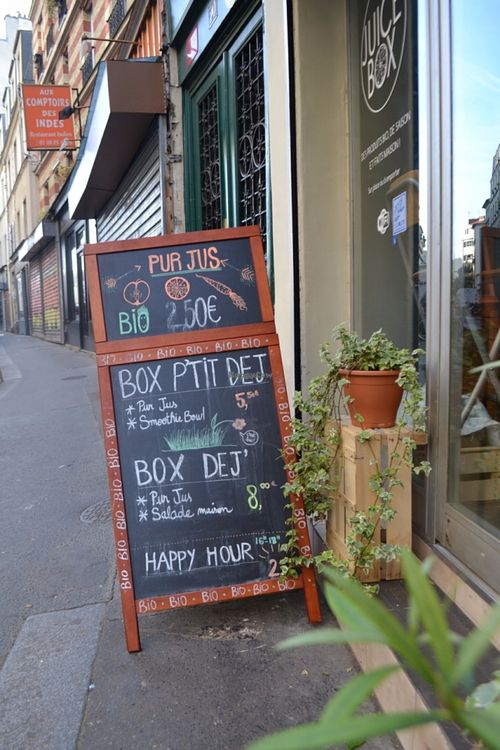 AUX
COMPTOIRS
DES
INDES
Restaurant Indien
JUICE
BOX
DES PRODUITS BIO, DE SAISON
ET FAITS MAISON !
Sur place ou à emporter
PUR JUS
BIO 2,50€
BIO BIO BIO BIO BIO BIO
BOX P'TIT DEJ
* Pur Jus 5,50
* Smoothie Bowl
BOX DEJ'
* Pur Jus
* Salade maison 8,00
HAPPY HOUR 16-18h
BIO BIO BIO BIO BIO